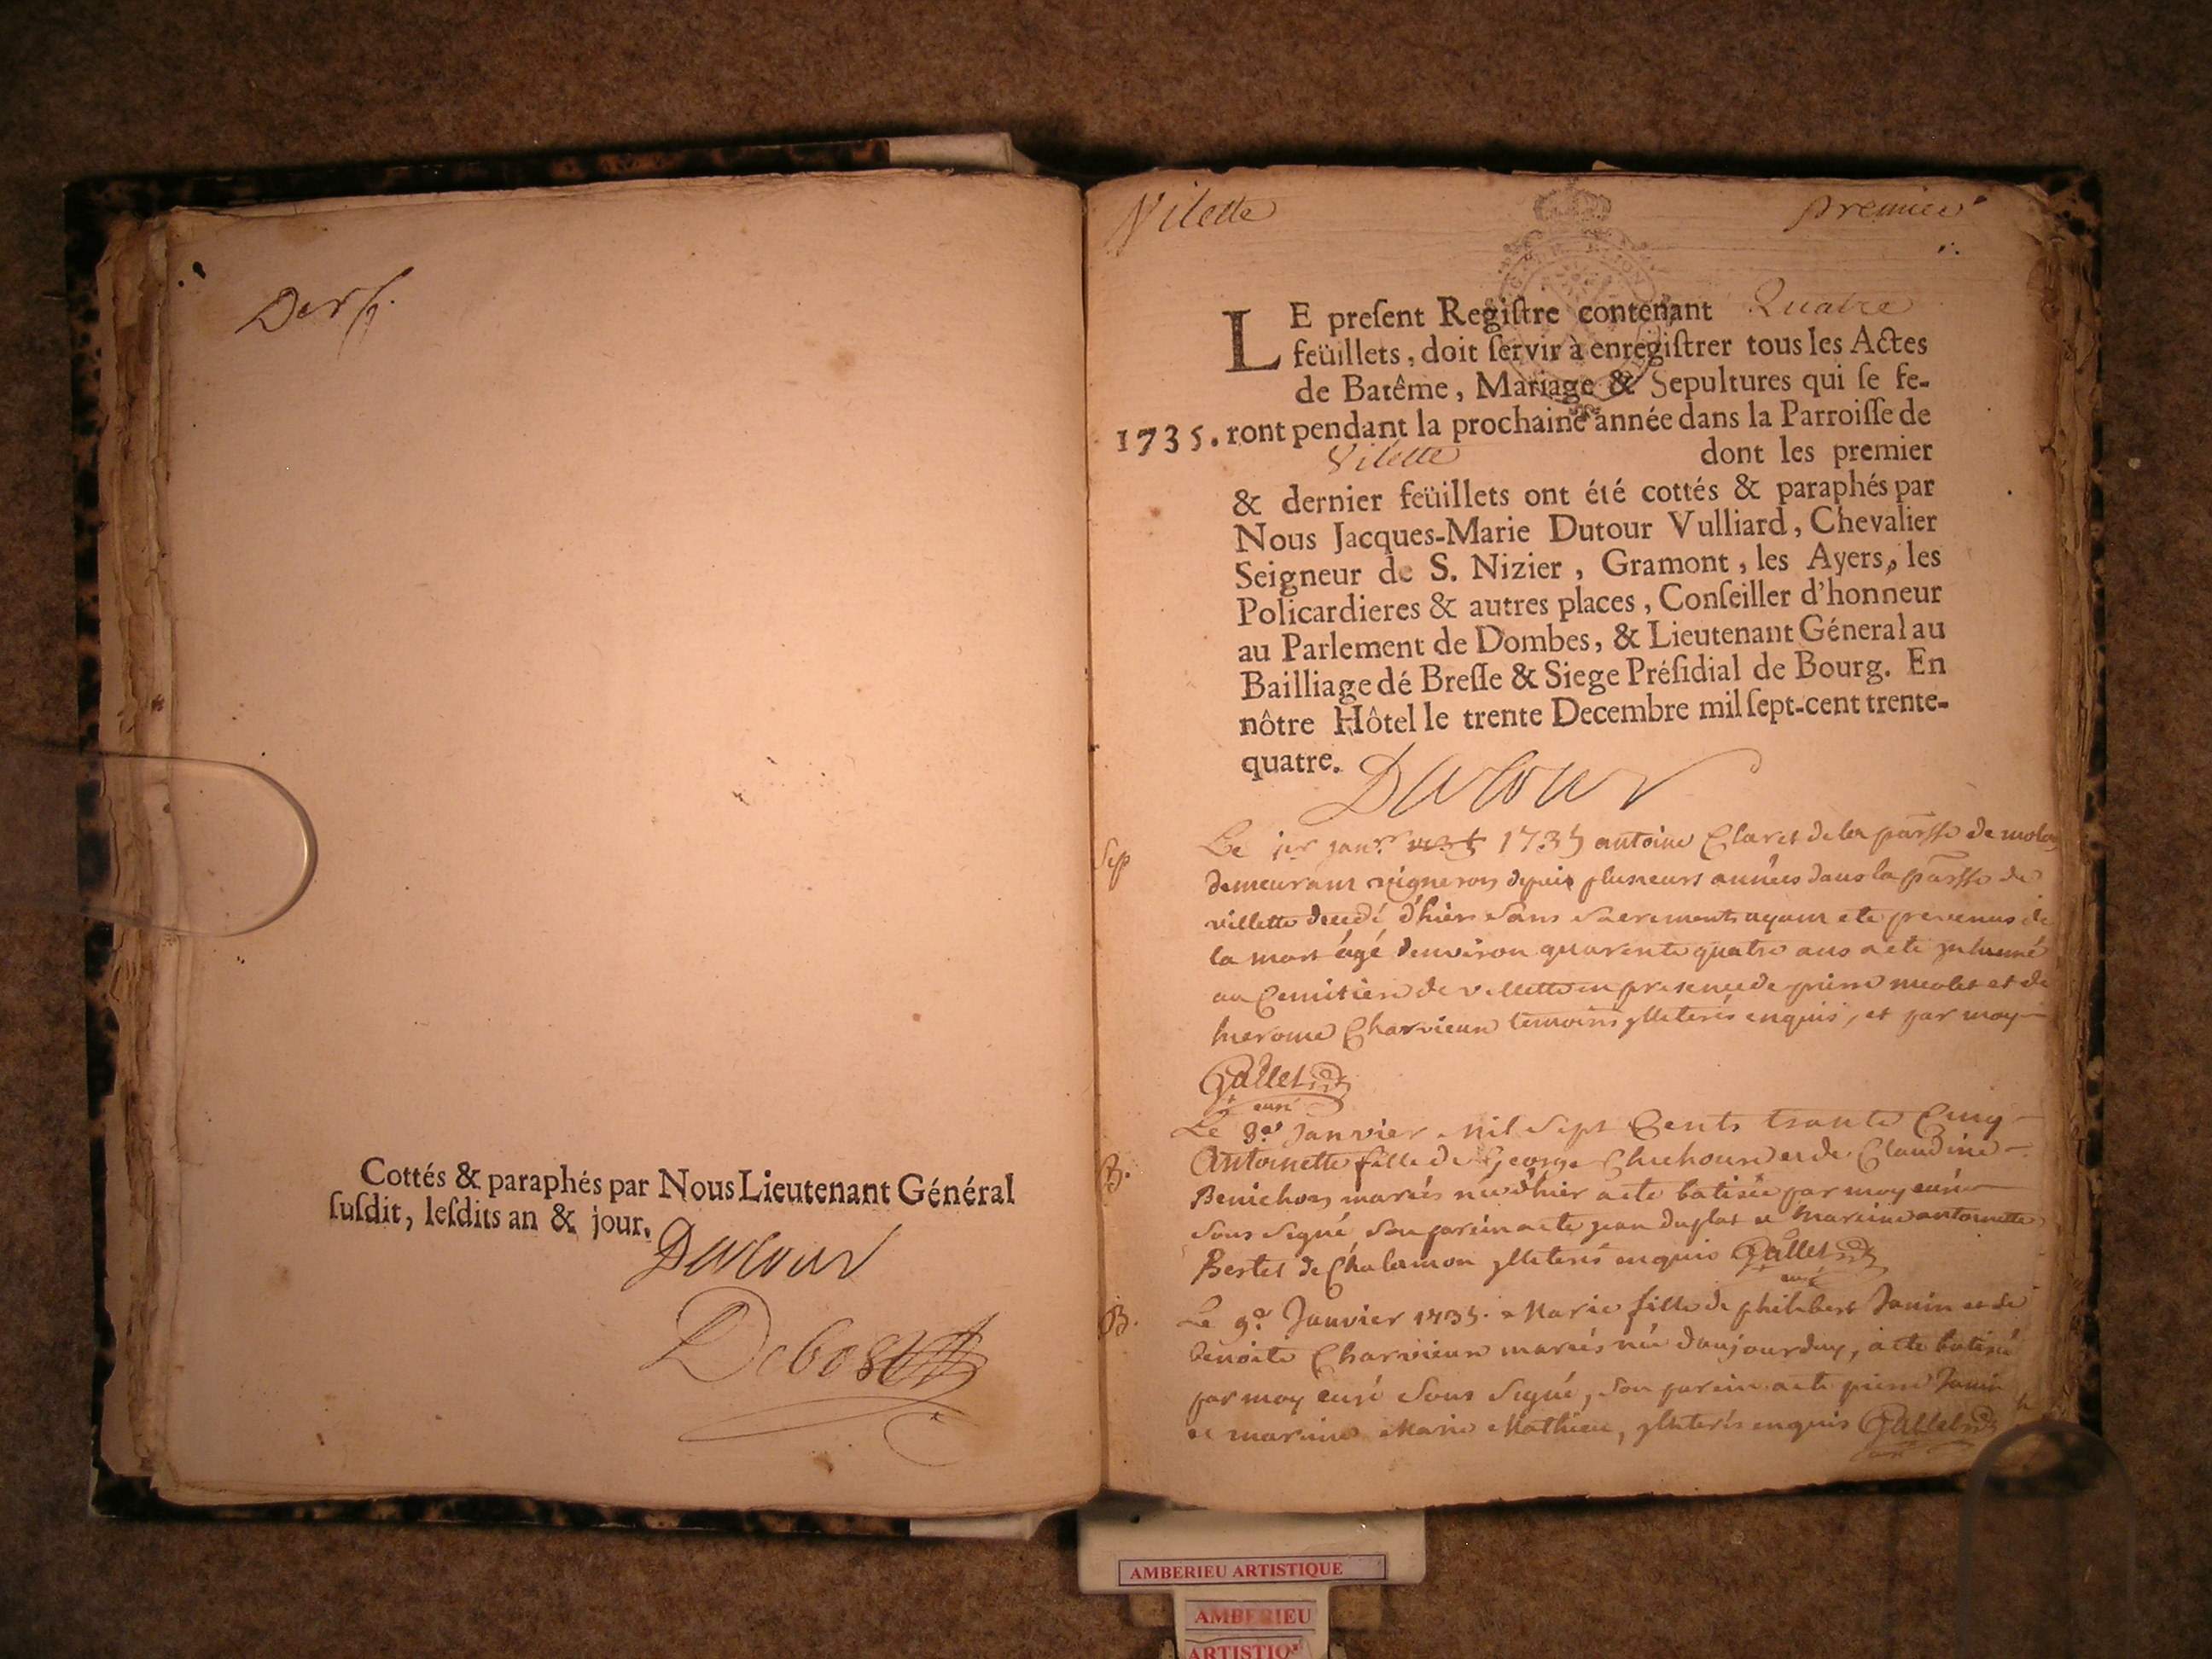 Der f.
Cottés & paraphés par Nous Lieutenant Général
ſuſdit, leſdits an & jour.
Dutour
Debost
Vilette
premier
LE preſent Regiſtre contenant Quatre
feüillets, doit ſervir à enregiſtrer tous les Actes
de Batême, Mariage & Sepultures qui ſe fe-
1735. ront pendant la prochaine année dans la Parroiſſe de
Vilette dont les premier
& dernier feüillets ont été cottés & paraphés par
Nous Jacques-Marie Dutour Vulliard, Chevalier
Seigneur de S. Nizier, Gramont, les Ayers, les
Policardieres & autres places, Conſeiller d'honneur
au Parlement de Dombes, & Lieutenant Géneral au
Bailliage dé Breſſe & Siege Préſidial de Bourg. En
nôtre Hôtel le trente Decembre mil ſept-cent trente-
quatre. Dutour
Sep Le 1er janr 1735 antoine Claret de la parsse de
demeurant vigneron depuis plusieurs années dans la parsse de
villette decedé d'hier sans sacrements ayant ete prevenus de
la mort âgé denviron quarente quatre ans a ete inhumé
au Cemitiere de villette en presence de pierre et de
hierome Charvieux temoins illeterés enquis, et par moy
Gallet
curé
Le 8e Janvier Mil Sept Cents trante Cinq
B. Antoinette fille de George et de Claudine
Benichon mariés née d'hier a ete batisée par moy curé
sous signé son parein a ete jean duplat et Mareine antoinette
Bertet de Chalamon illeterés enquis Gallet
curé
B. Le 9e Janvier 1735. Marie fille de philibert Janin et de
benoite Charvieux mariés née daujourduy, a ete batisé
par moy curé sous signé, son parein a ete pierre Janin
et mareine Marie Mathieu, illeterés enquis Gallet
curé
AMBERIEU ARTISTIQUE
AMBERIEU
ARTISTIQ